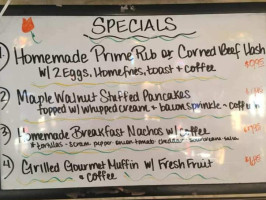 SPECIALS
1) Homemade Prime Rib or Corned Beef Hash
w/ 2 Eggs, Homefries, toast + coffee
2) Maple Walnut Stuffed Pancakes
topped w/ whipped cream + bacon sprinkle - coffee
3) Homemade Breakfast Nachos w/ coffee
* tortillas - scram pepper onion tomato cheddar sourcream salsa
4) Grilled Gourmet Muffin w/ Fresh Fruit
+ coffee